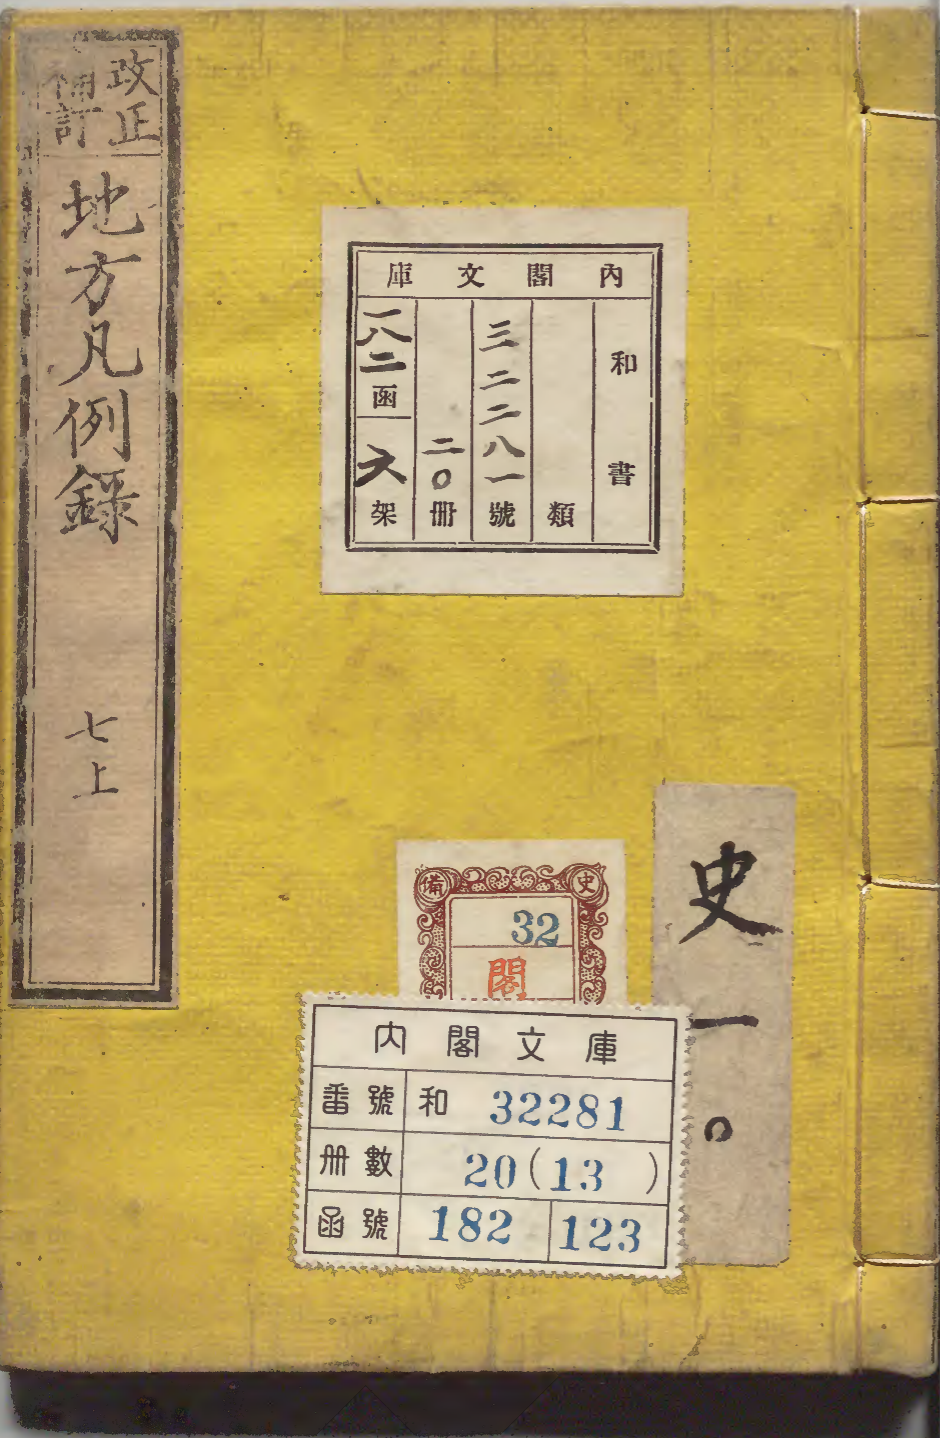 改正
補訂
地方凡例録
七上
內閣文庫
和書
類
三二二八一號
二〇冊
一八二函
六架
史
備
32
閣
史一〇
內閣文庫
番號 和 32281
冊數 20(13)
函號 182 123